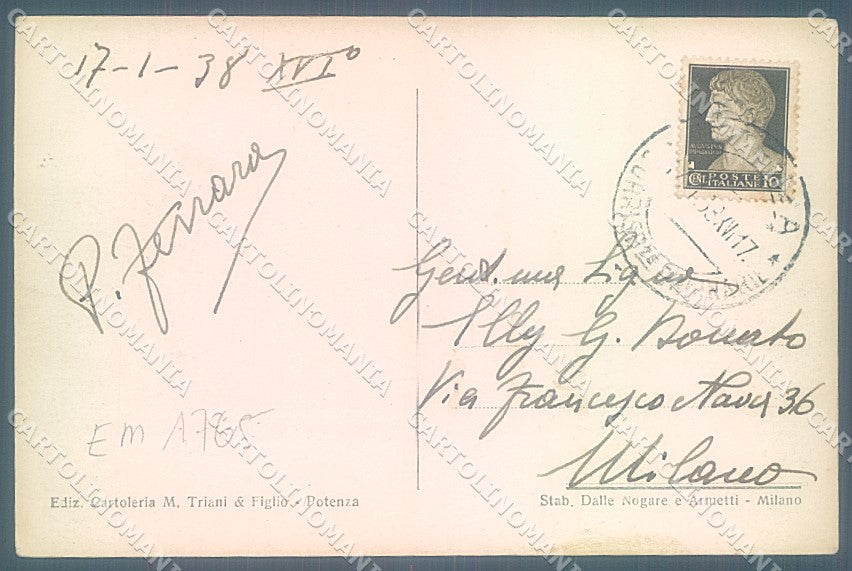 17-1-38 XVIº
P. Ferrara
AUGUSTUS
POSTE
ITALIANE
CENT. 10
38.XVI.17
Gent.ma Sig.ra
Elly G. Donato
Via Francesco Nava 36
Milano
EM 1785
Ediz. Cartoleria M. Triani & Figlio - Potenza
Stab. Dalle Nogare e Armetti - Milano
CARTOLINOMANIA